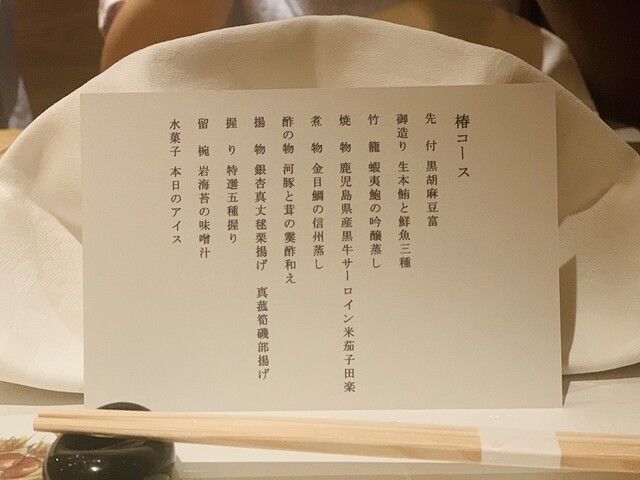 椿コース
先　付 黒胡麻豆富
御造り 生本鮪と鮮魚三種
竹　籠 蝦夷鮑の吟醸蒸し
焼　物 鹿児島県産黒牛サーロイン米茄子田楽
煮　物 金目鯛の信州蒸し
酢の物 河豚と茸の霙酢和え
揚　物 銀杏真丈毬栗揚げ　真菰筍磯部揚げ
握　り 特選五種握り
留　椀 岩海苔の味噌汁
水菓子 本日のアイス